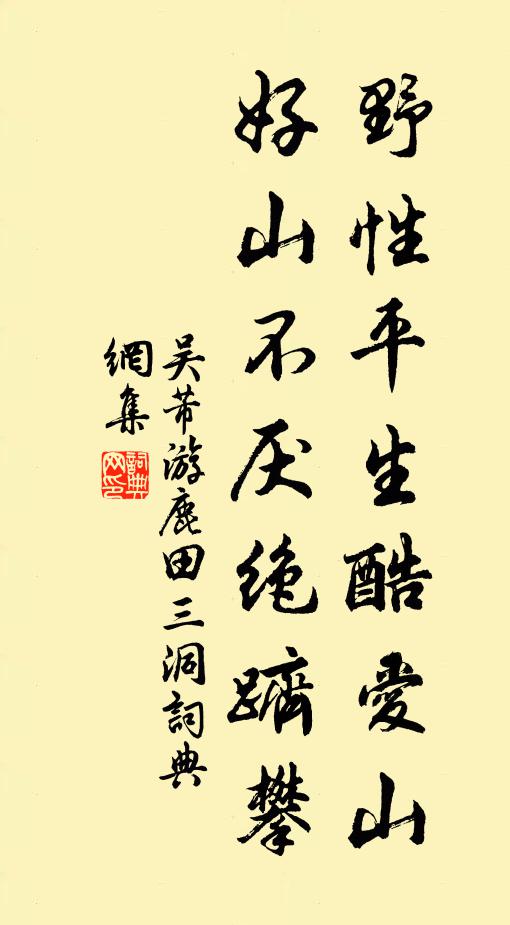 野性平生酷愛山
好山不厌絶躋攀
吴芾游鹿田三洞詞典
網集
詞典
网印